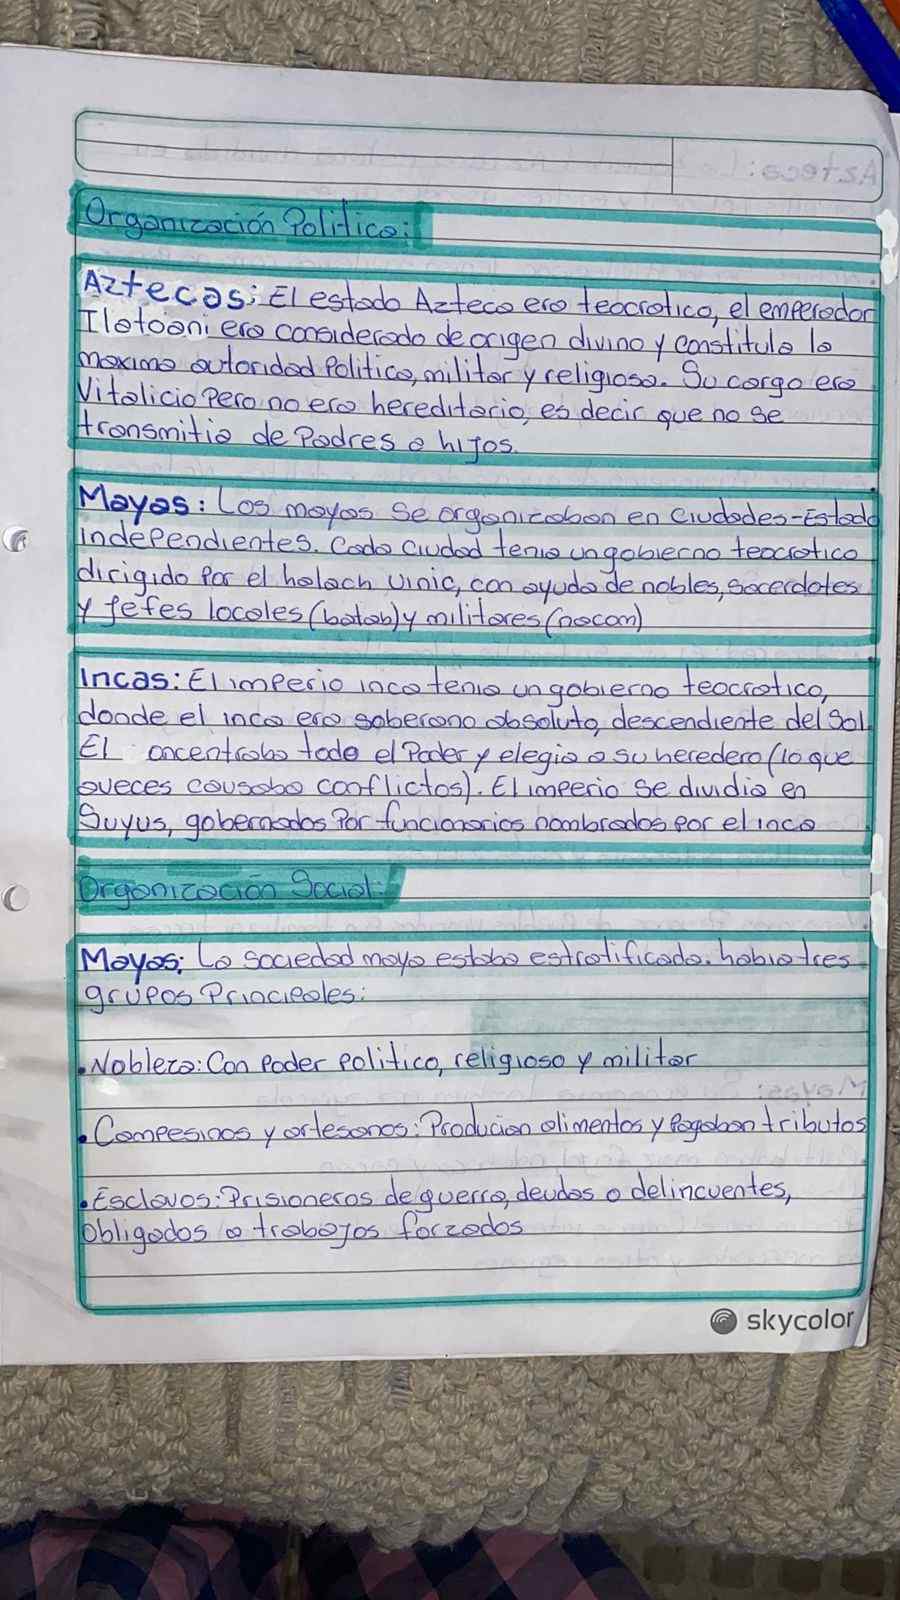 Organización Politica:
Aztecas: El estado Azteca era teocratico, el emperador
Ilatoani era considerado de origen divino y constituia la
maxima autoridad Politica, militar y religiosa. Su cargo era
Vitalicio Pero no era hereditario, es decir que no se
transmitia de Padres a hijos.
Mayas: Los mayas se organizaban en Ciudades-Estado
independientes. Cada ciudad tenia un gobierno teocratico
dirigido Por el halach uinic, con ayuda de nobles, sacerdotes
y Jefes locales (batab) y militares (nacom)
Incas: El imperio inca tenia un gobierno teocratico,
donde el inca era soberano absoluto, descendiente del Sol.
El oncentraba todo el Poder y elegia a su heredero (lo que
aveces causaba conflictos). El imperio se dividia en
Suyus, gobernados Por funcionarios nombrados Por el inca
Organización Social:
Mayas: La sociedad maya estaba estratificada. habia tres
grupos Principales:
• Nobleza: Con Poder Politico, religioso y militar
• Campesinos y artesanos: Producian alimentos y Pagaban tributos
• Esclavos: Prisioneros de guerra, deudas o delincuentes,
obligados a trabajos forzados
skycolor